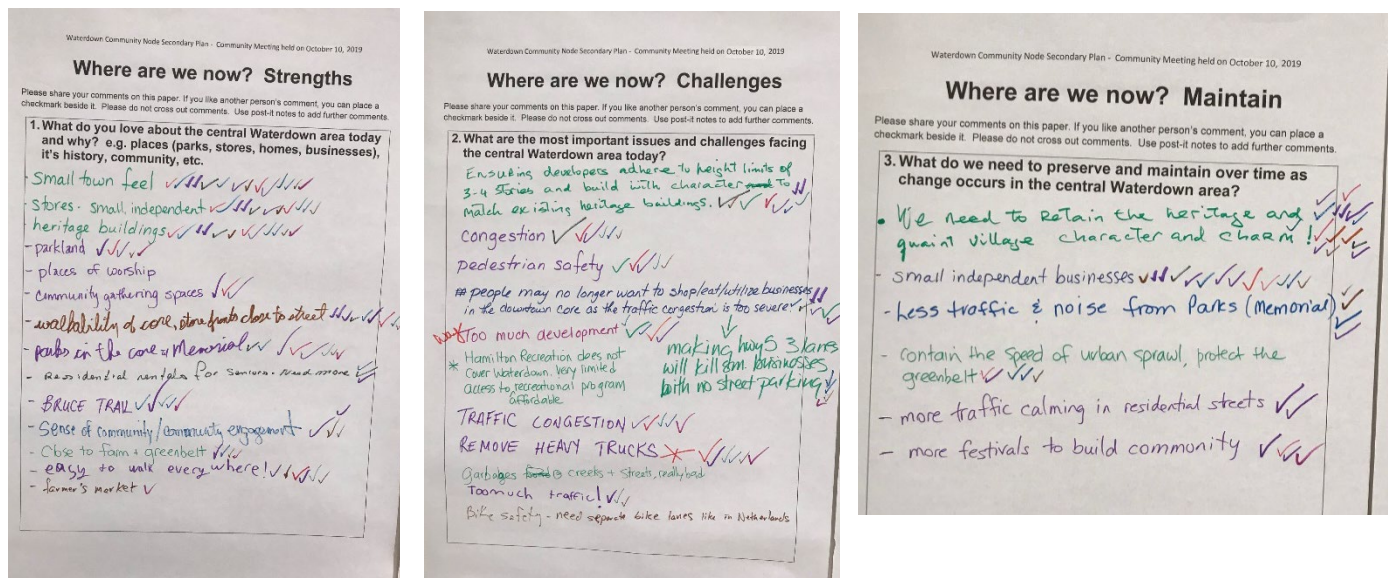 Waterdown Community Node Secondary Plan - Community Meeting held on October 10, 2019
Where are we now? Strengths
Please share your comments on this paper. If you like another person's comment, you can place a
checkmark beside it. Please do not cross out comments. Use post-it notes to add further comments.
1. What do you love about the central Waterdown area today
and why? e.g. places (parks, stores, homes, businesses),
it's history, community, etc.
- Small town feel
- stores - small, independent
- heritage buildings
- parkland
- places of worship
- community gathering spaces
- walkability of core, store fronts close to street
- parks in the core - Memorial
- Residential rentals for Seniors. Need more
- BRUCE TRAIL
- Sense of community/community engagement
- Close to farm + greenbelt
- easy to walk everywhere!
- farmer's market
Waterdown Community Node Secondary Plan - Community Meeting held on October 10, 2019
Where are we now? Challenges
Please share your comments on this paper. If you like another person's comment, you can place a
checkmark beside it. Please do not cross out comments. Use post-it notes to add further comments.
2. What are the most important issues and challenges facing
the central Waterdown area today?
Ensuring developers adhere to height limits of
3-4 Stories and build with character To
match existing heritage buildings.
Congestion
pedestrian safety
people may no longer want to shop/eat/utilize businesses
in the downtown core as the traffic congestion is too severe!
Too much development
making hwy 5 3 lanes
will kill sm. businesses
with no street parking
* Hamilton Recreation does not
Cover Waterdown. Very limited
access to recreational program
affordable
TRAFFIC CONGESTION
REMOVE HEAVY TRUCKS
Garbages creeks + streets, really bad
Too much traffic!
Bike safety - need separate bike lanes like in Netherlands
Waterdown Community Node Secondary Plan - Community Meeting held on October 10, 2019
Where are we now? Maintain
Please share your comments on this paper. If you like another person's comment, you can place a
checkmark beside it. Please do not cross out comments. Use post-it notes to add further comments.
3. What do we need to preserve and maintain over time as
change occurs in the central Waterdown area?
• We need to Retain the heritage and
quaint village character and charm!
- small independent businesses
- Less traffic & noise from Parks (Memorial)
- contain the speed of urban sprawl, protect the
greenbelt
- more traffic calming in residential streets
- more festivals to build community